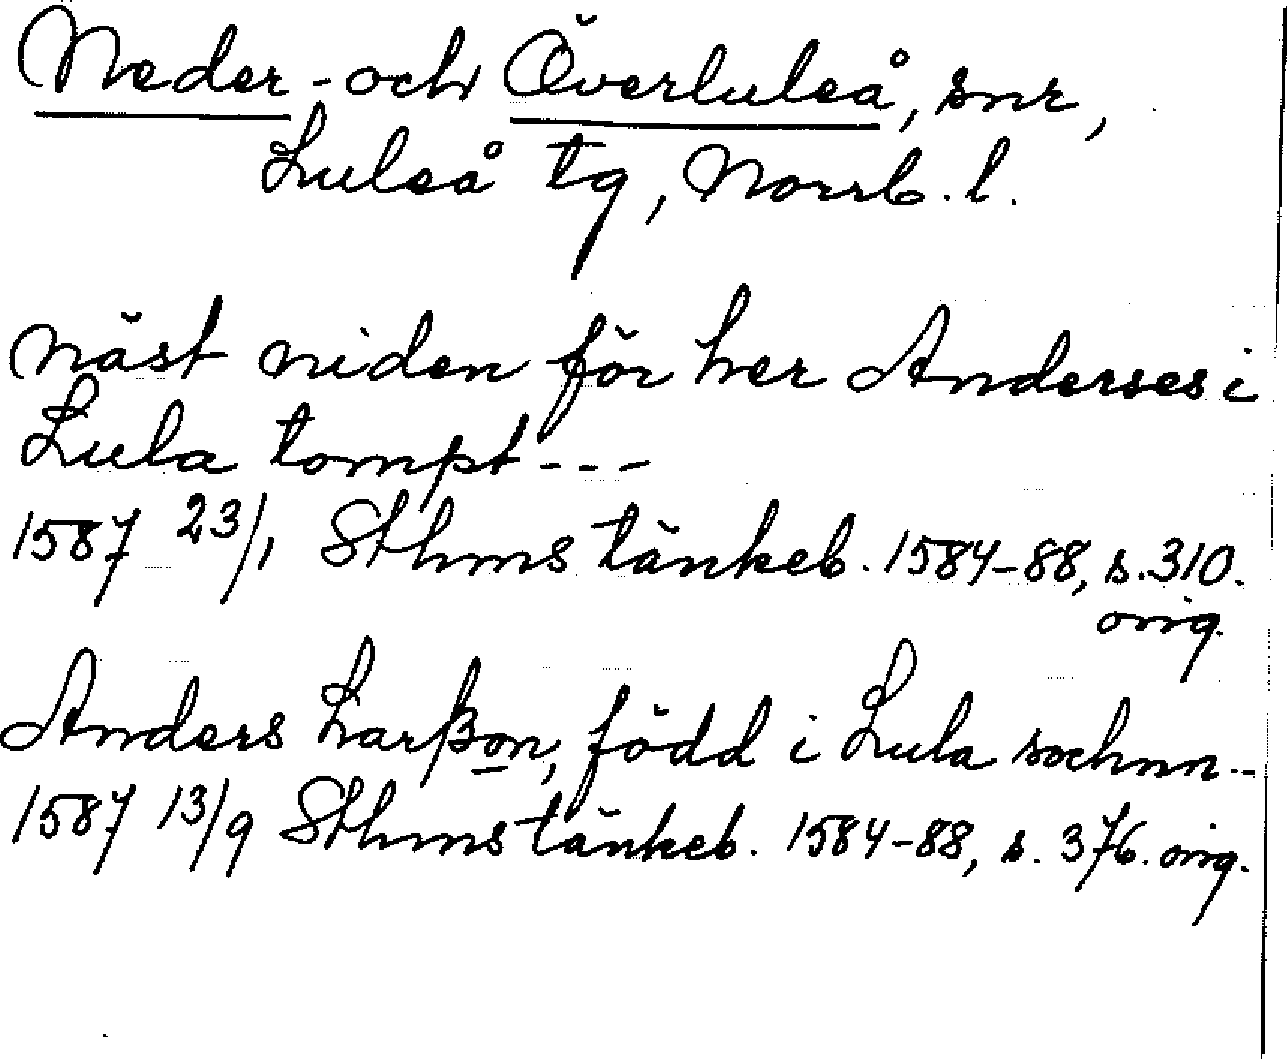 Neder- och Överluleå, snr,
Luleå tg, Norrb. l.
näst niden för her Anderses i
Lula tompt ---
1587 23/1 Sthms tänkeb. 1584-88, s. 310.
orig.
Anders Larßon, född i Lula sochnn --
1587 13/9 Sthms tänkeb. 1584-88, s. 376. orig.